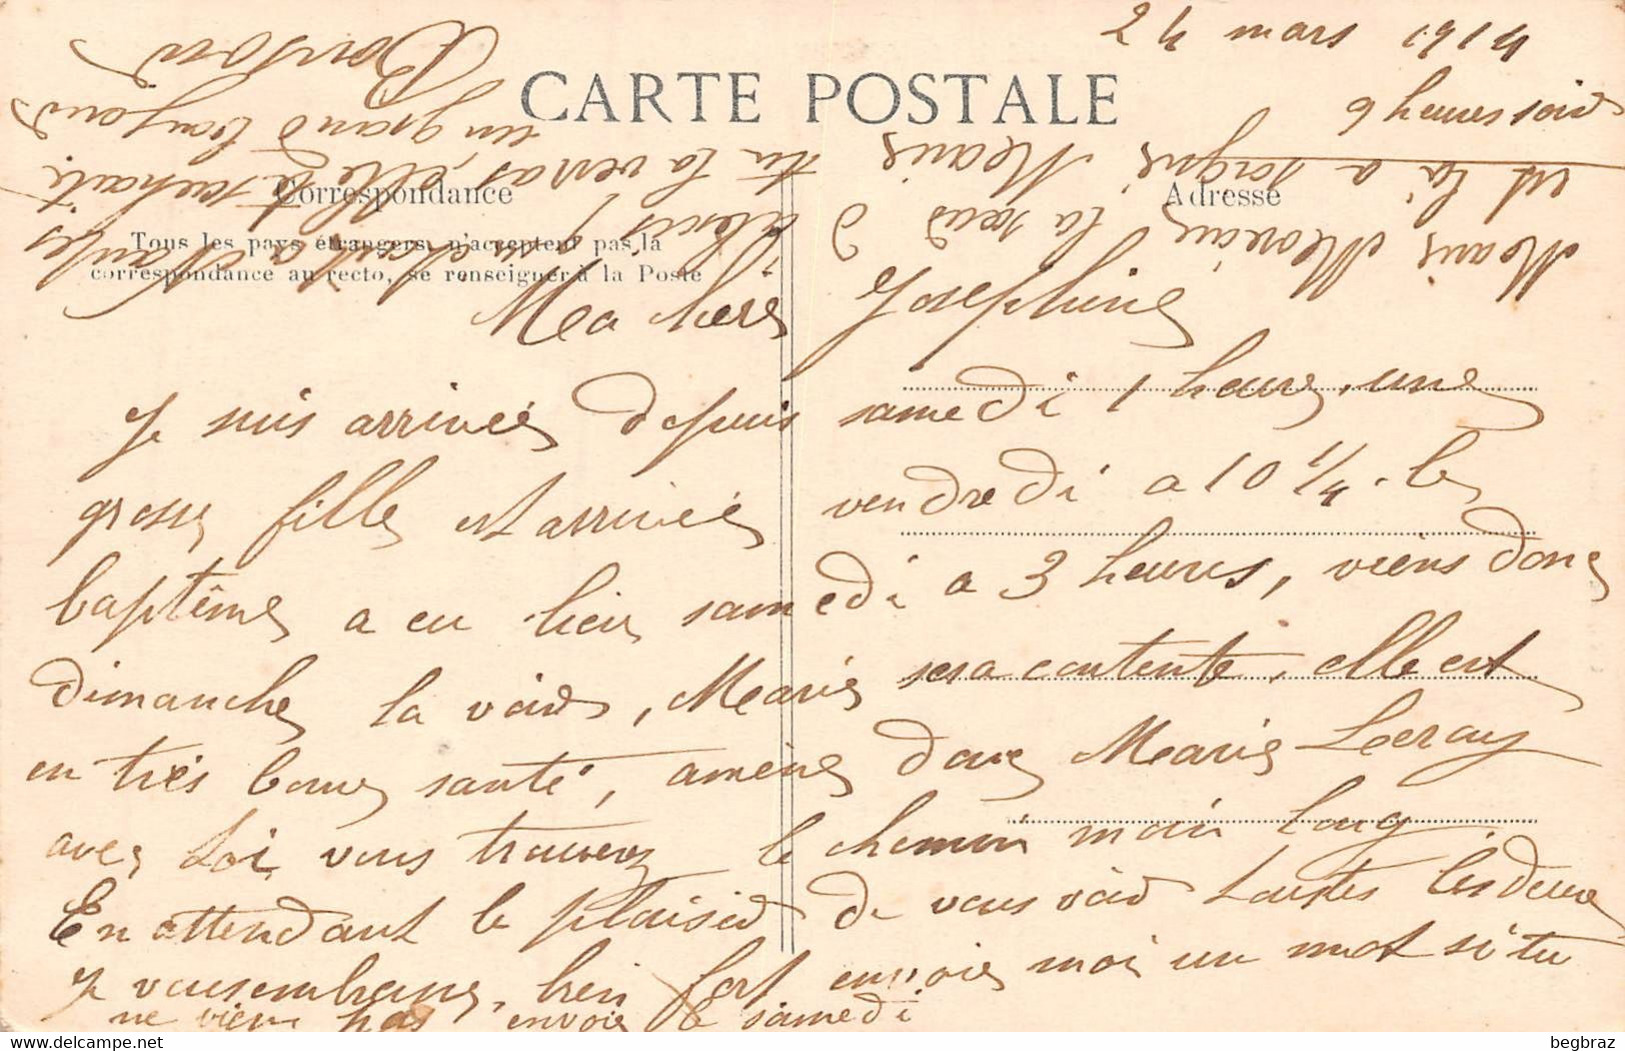 24 mars 1914
6 heures soir
CARTE POSTALE
Correspondance
Adresse
Tous les pays étrangers n'acceptent pas la
correspondance au recto, se renseigner à la Poste
Ma chere Josephine
Je suis arrivée depuis samedi 1 heure, une
grosse fille est arrivée vendredi a 10 1/4. le
baptême a eu lieu samedi a 3 heures, viens donc
dimanche la voir, Marie sera contente, elle est
en très bonne santé, amène donc Marie Leray
avec toi vous trouverez le chemin moin long.
En attendant le plaisir de vous voir toutes les deux
Je vous embrasse bien fort envoie moi un mot si tu
ne viens pas envoie le samedi
Marie la sœur d'Alexis
est la a soigné Marie tu la verras, elle te souhaite
un grand bonjour
Bonsoir
begbraz